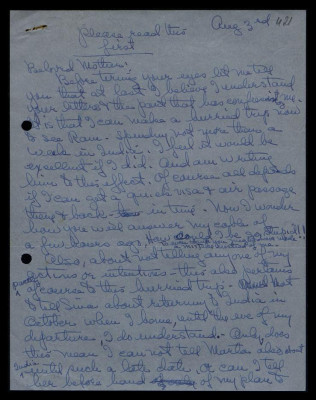 Aug 3rd
Please read this
first
Beloved Mother:
Before turning your eyes let me tell
you that at last I believe I understand
your letters & the part that has confused me.
It is that I can make a hurried trip now
to see Ram. Spending not more than a
week in India. I feel it would be
excellent if I did. And am writing
him to this effect. Of course all depends
if I can get a quick visa & air passage
there & back in time. Now I wonder
how you will answer my cable of
a few hours ago.
Also, about not telling anyone of my
actions or intentions - this also pertains
of course to this hurried trip. And not
to tell about returning to India in
October when I home, until the eve of my
departure. I do understand. Only, does
this mean I can not tell Martha also about
India until such a late date, or can I tell
her before hand of my plan to